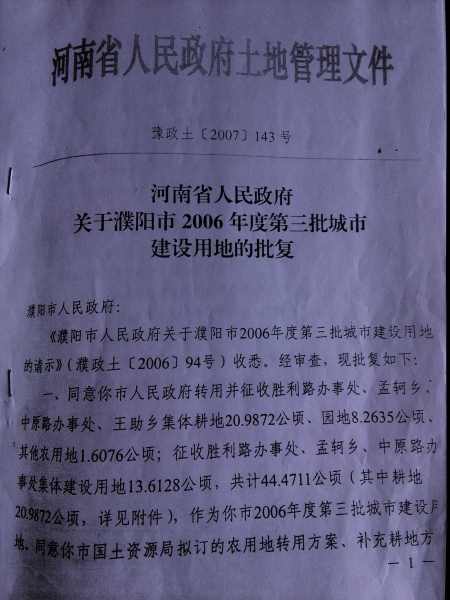 河南省人民政府土地管理文件
豫政土〔2007〕143号
河南省人民政府
关于濮阳市2006年度第三批城市
建设用地的批复
濮阳市人民政府:
《濮阳市人民政府关于濮阳市2006年度第三批城市建设用地
的请示》(濮政土〔2006〕94号)收悉。经审查,现批复如下:
一、同意你市人民政府转用并征收胜利路办事处、孟轲乡、
中原路办事处、王助乡集体耕地20.9872公顷、园地8.2635公顷、
其他农用地1.6076公顷;征收胜利路办事处、孟轲乡、中原路办
事处集体建设用地13.6128公顷,共计44.4711公顷(其中耕地
20.9872公顷,详见附件),作为你市2006年度第三批城市建设用
地。同意你市国土资源局拟订的农用地转用方案、补充耕地方
— 1 —